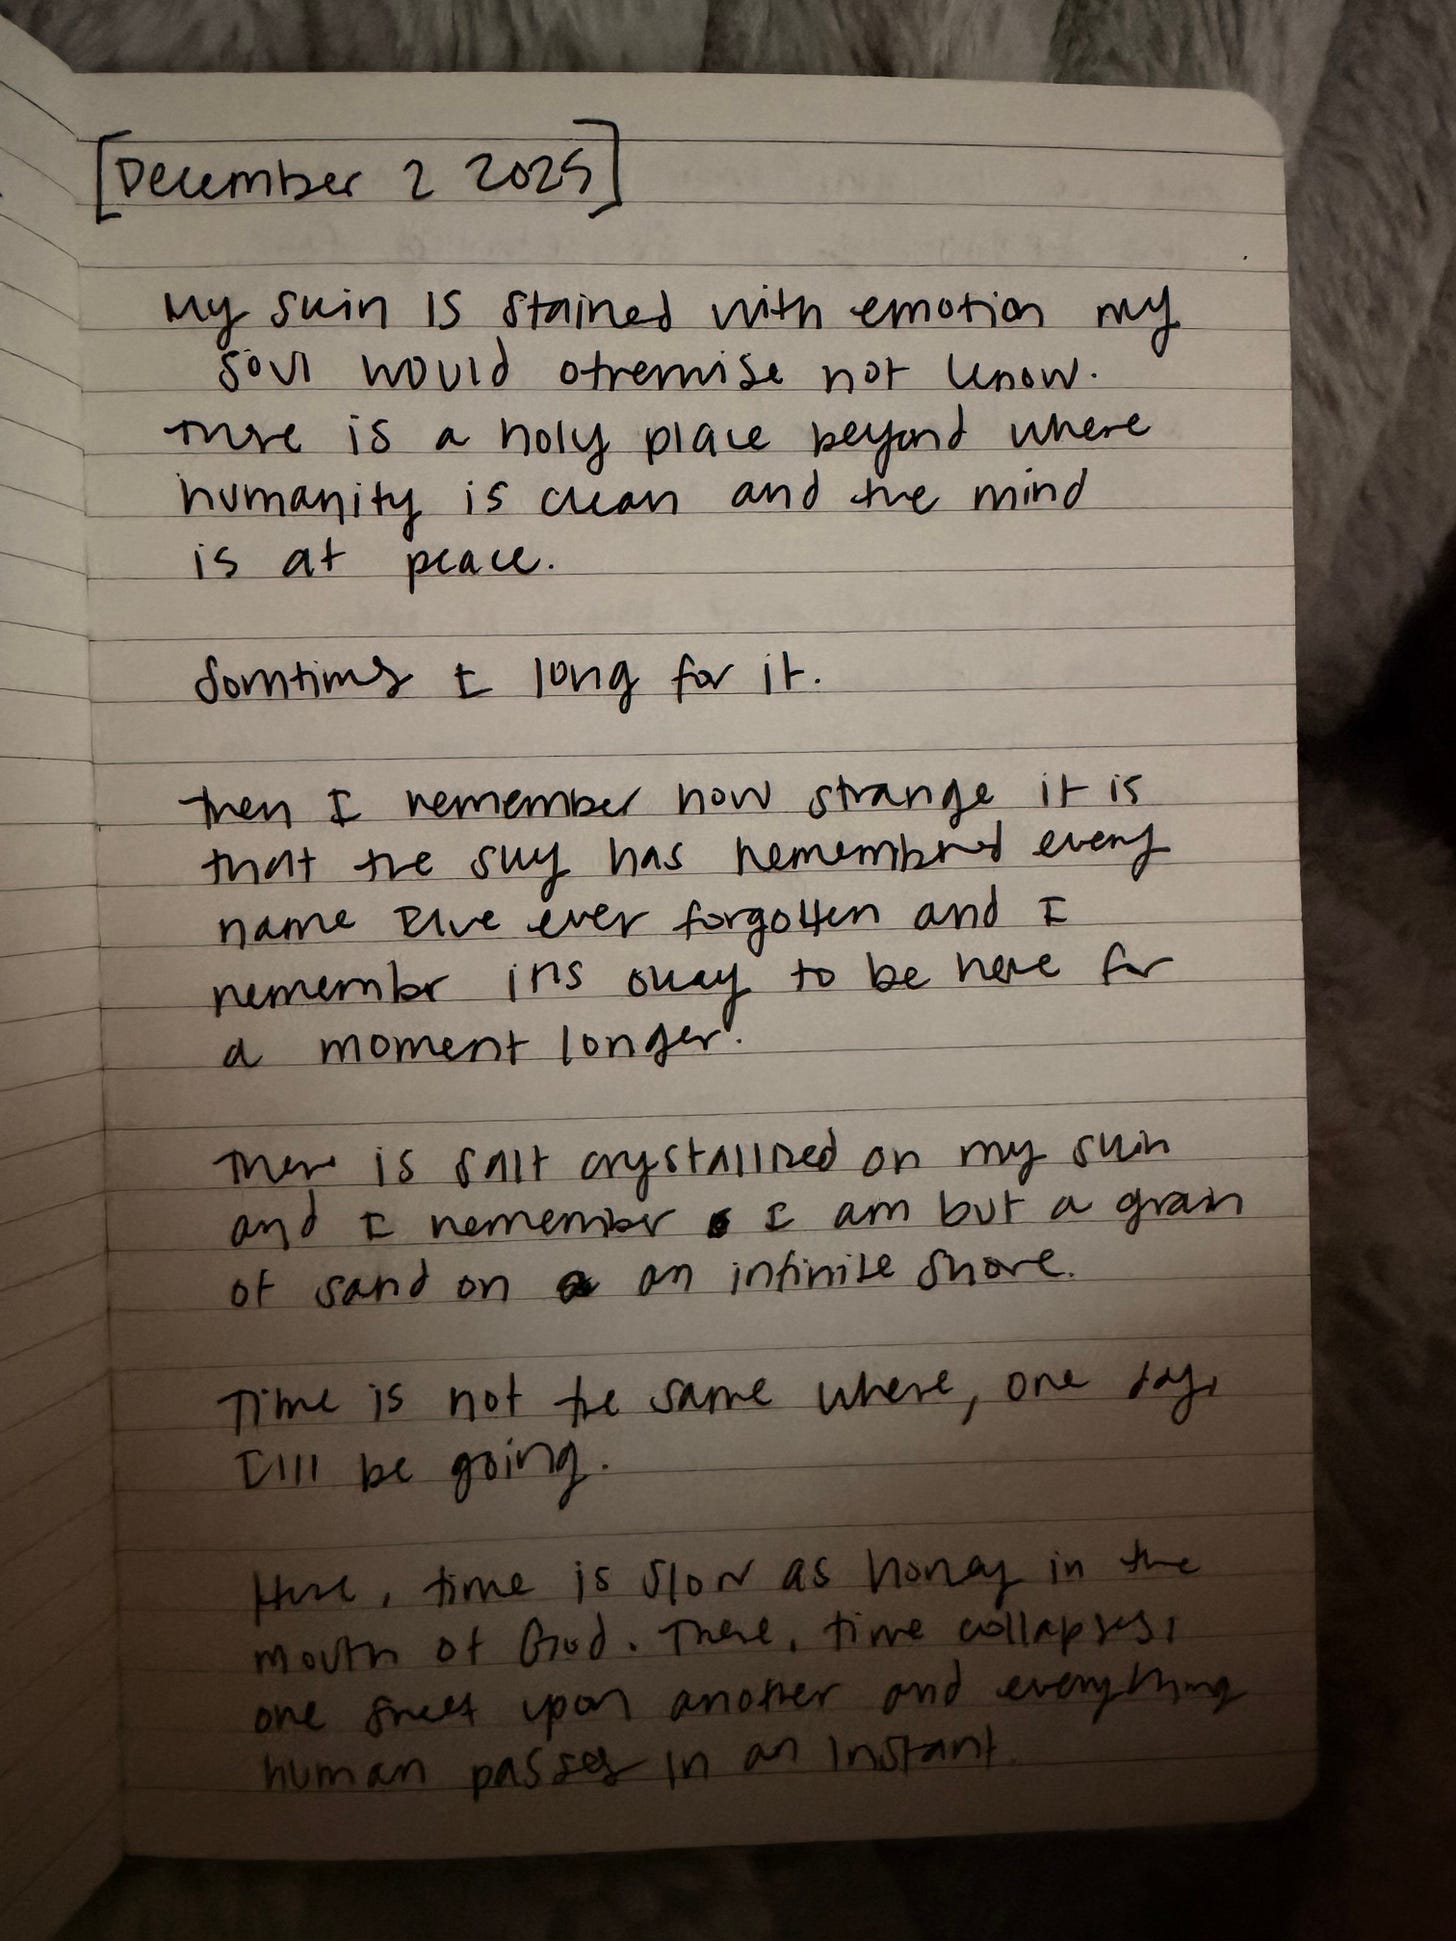 [December 2 2025]
My skin is stained with emotion my
soul would otherwise not know.
There is a holy place beyond where
humanity is clean and the mind
is at peace.
Somtims I long for it.
Then I remember how strange it is
that the sky has remembered every
name I've ever forgotten and I
remembr it's okay to be here for
a moment longer.
There is salt crystallized on my skin
and I remember I am but a grain
of sand on an infinite shore.
Time is not the same where, one day,
I'll be going.
Here, time is slow as honey in the
mouth of God. There, time collapses,
one sheet upon another and everything
human passes in an instant.